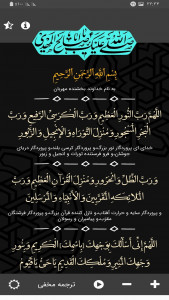 ۲۲:۲۴
بِسْمِ اللهِ الرَّحْمنِ الرَّحِيمِ
به نام خداوند بخشنده مهربان
اَللّهُمَّ رَبَّ النُّورِ الْعَظيمِ وَرَبَّ الْكُرْسِيِّ الرَّفيعِ وَرَبَّ
الْبَحْرِ الْمَسْجُورِ وَمُنْزِلَ التَّوْراةِ وَالْإِنْجيلِ وَالزَّبُورِ
خدای ای پروردگار نور بزرگ و پروردگار کرسی بلند و پروردگار دریای
جوشان و فرو فرستنده تورات و انجیل و زبور
وَرَبَّ الظِّلِّ وَالْحَرُورِ وَمُنْزِلَ الْقُرْآنِ الْعَظيمِ وَرَبَّ
الْمَلائِكَةِ الْمُقَرَّبينَ وَالْأَنْبِياءِ وَالْمُرْسَلينَ
و پروردگار سایه و حرارت آفتاب و نازل کننده قرآن بزرگ و پروردگار فرشتگان
مقرب و پیامبران و رسولان
اَللّهُمَّ إِنّي أَسْأَلُكَ بِوَجْهِكَ الْكَريمِ وَبِنُورِ
وَجْهِكَ الْمُنيرِ وَمُلْكِكَ الْقَديمِ يا حَيُّ يا قَيُّومُ
ترجمه مخفی